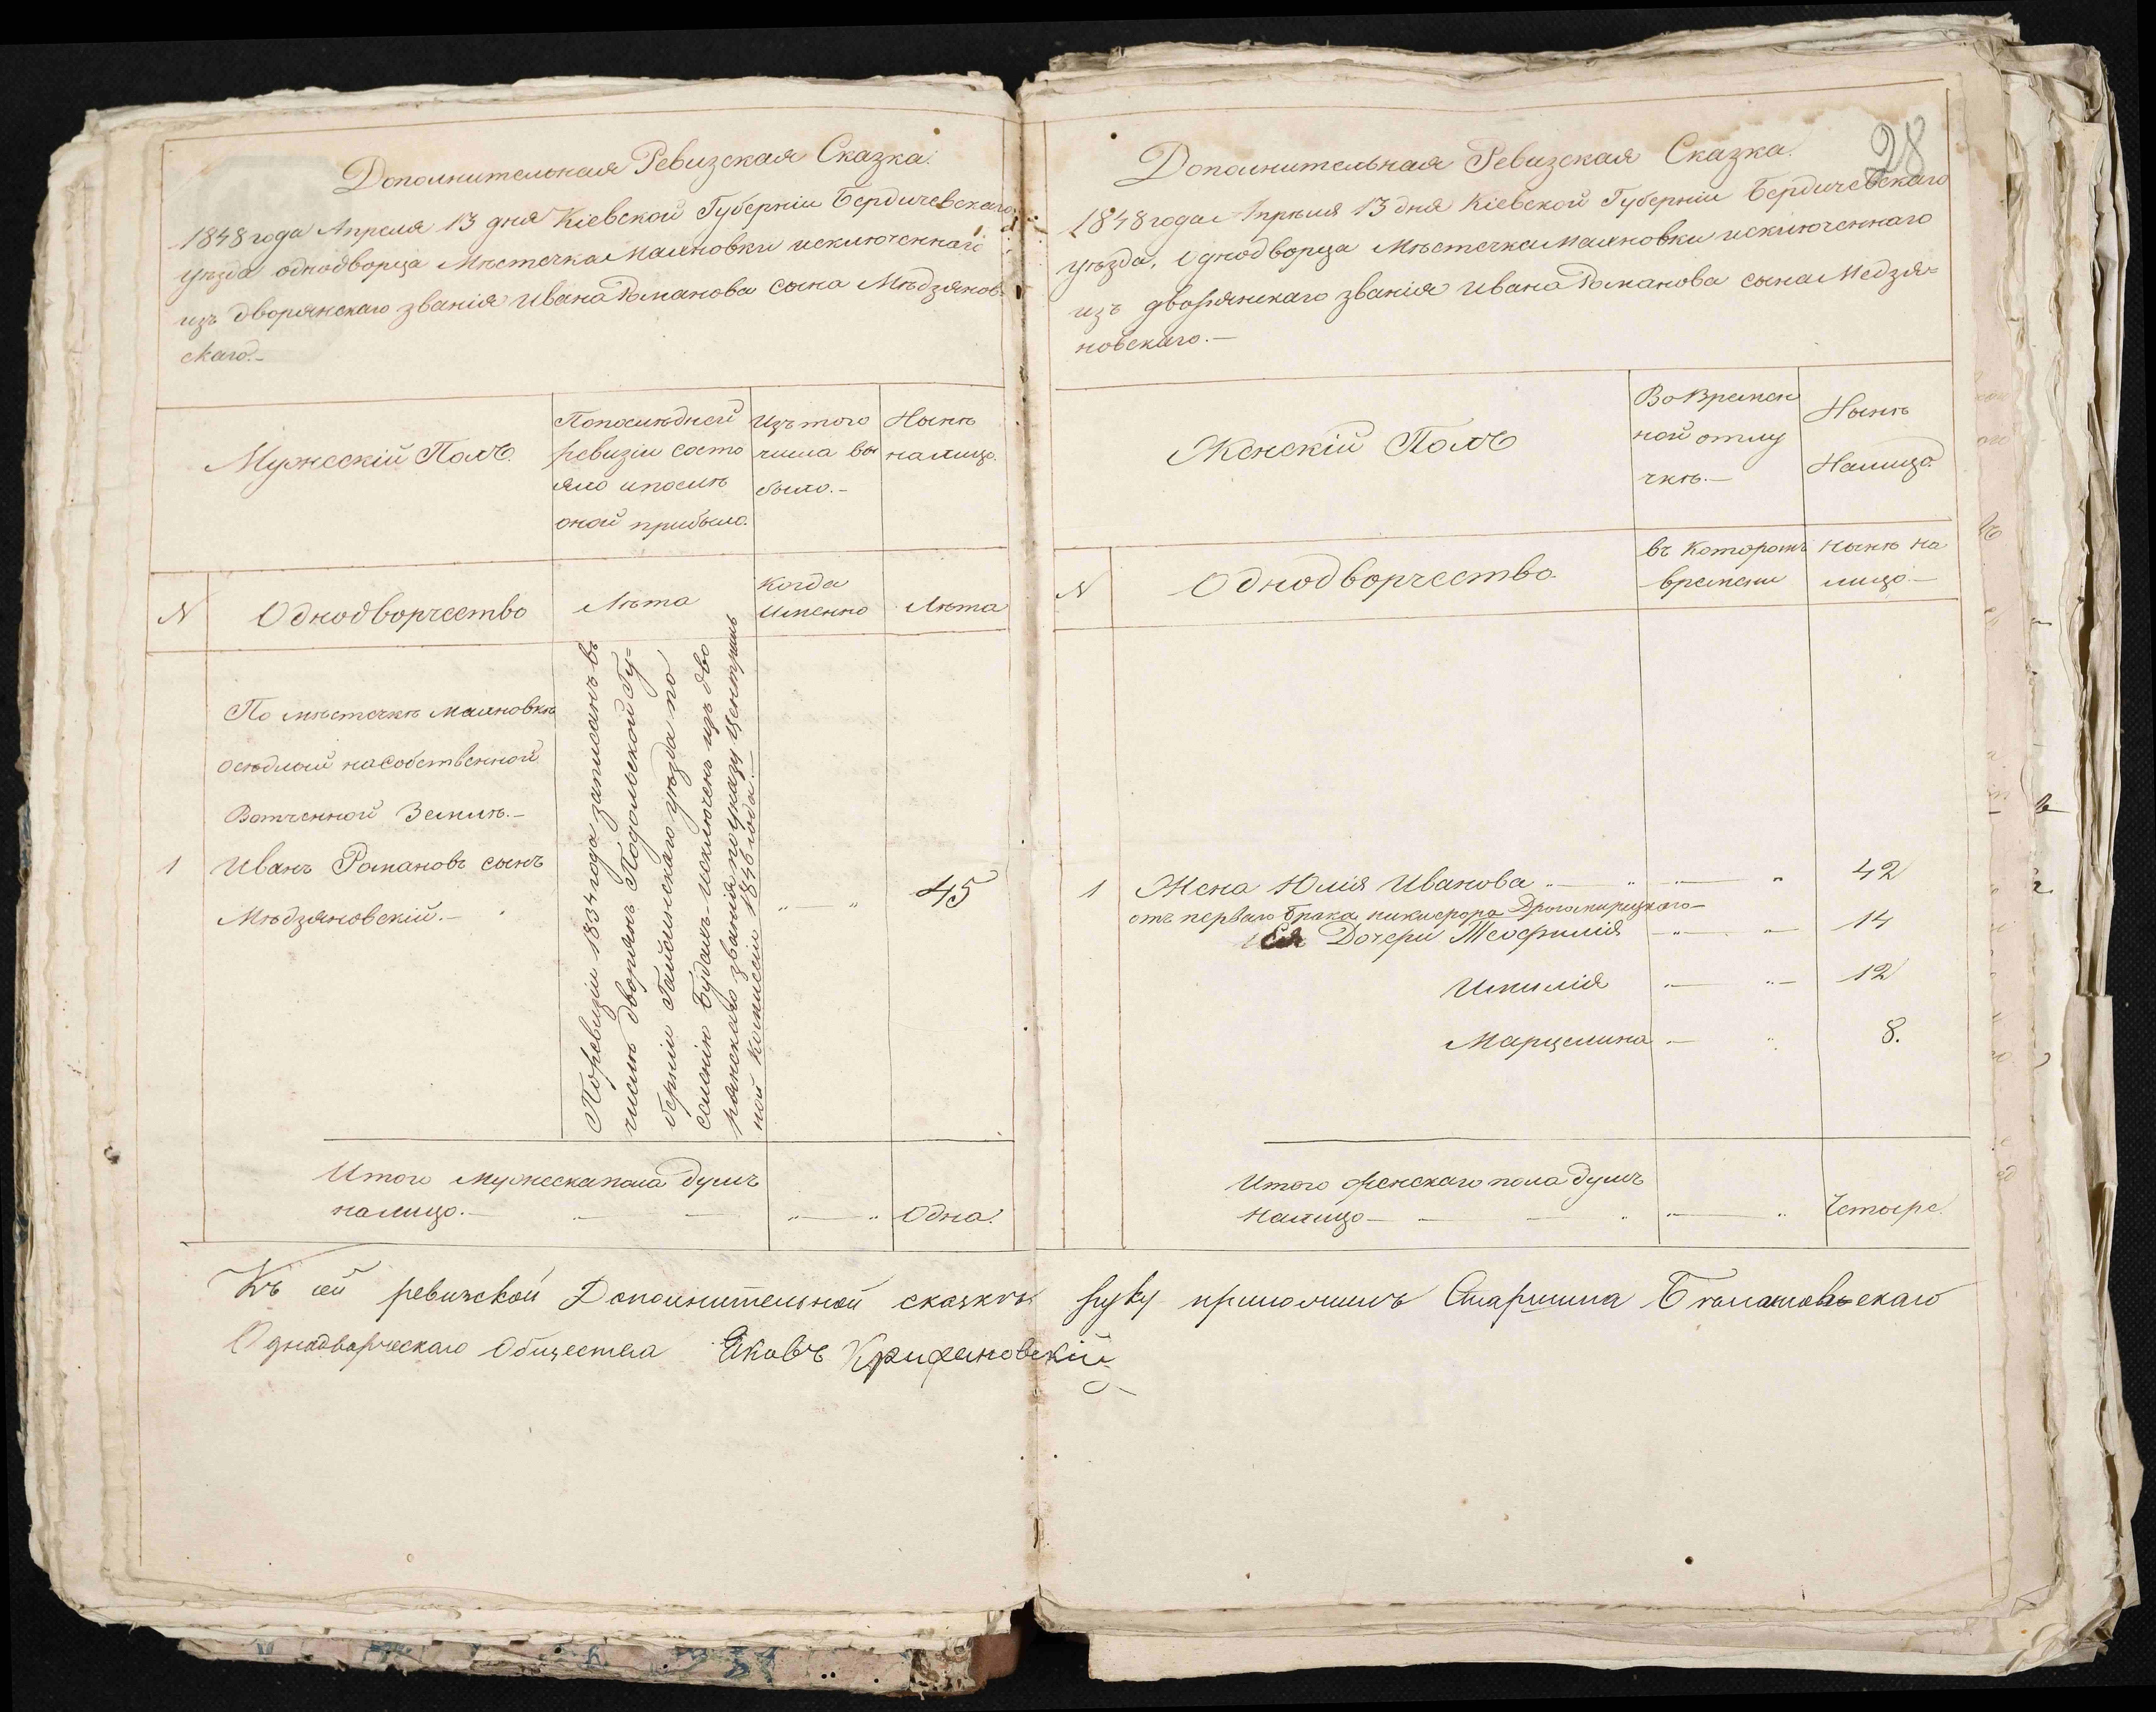 Дополнительная Ревизская Сказка.
1848 года Апреля 13 дня Кіевской Губерніи Бердичевскаго
уѣзда однодворца Мѣстечка Махновки исключеннаго
изъ дворянскаго званія Ивана Романова сына Мѣдзянов-
скаго.-
Мужескій Полъ.
По послѣдней
ревизіи состо
яло и послѣ
оной прибыло.
Изъ того
числа вы
было.-
Нынѣ
на лицо.
N
Однодворчество
Лѣта
Когда
Именно
Лѣта
По мѣстечкѣ Махновкѣ
осѣдлый на собственной
Вотченной Землѣ.-
1 Иванъ Романовъ сынъ
Мѣдзяновскій.-
По ревизіи 1834 года записанъ въ
числѣ дворянъ Подольской Гу=
берніи Гайсинскаго уѣзда по
селенію исключенъ изъ дво
рянскаго званія по указу Централь
ной Коммисіи 1846 года.-
„ — „ 45
Итого мужеска пола душъ
налицо.- „ — „ Одна.
28
Дополнительная Ревизская Сказка.
1848 года Апрѣля 13 дня Кіевской Губерніи Бердичевскаго
уѣзда, Однодворца Мѣстечка Махновки исключеннаго
изъ дворянскаго званія Ивана Романова сына Медзя=
новскаго.-
Женскій Полъ
Во Времен
ной отлу
чкѣ.-
Нынѣ
Налицо.
N
Однодворчество.
въ Которомъ
времени
нынѣ на
лицо.-
1 Жена Юлія Иванова „ — „ — „ 42
отъ перваго брака никифора
Ея Дочери Теофилія — „ — 14
Имилія — „ — 12
Марцелина — „ 8.
Итого женскаго пола душъ
налицо — — — „ — „ Четыре.
Къ сей ревизской Дополнительной сказкѣ руку приложилъ Старшина
Однодворческаго Общества Яковъ